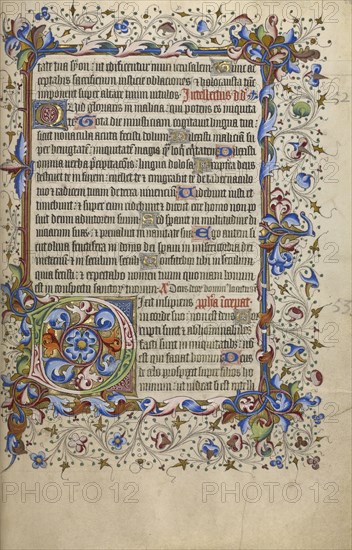 tate tua syon: ut edificentur muri ierusalem. Tunc ac
ceptabis sacrificium iusticie oblaciones et holocausta: tunc
imponent super altare tuum vitulos. Intellectus dd.
Quid gloriaris in malicia: qui potens es iniquita
te. Tota die iniusticiam cogitavit lingua tua:
sicut novacula acuta fecisti dolum. Dilexisti maliciam su
per benignitatem: iniquitatem magis qm loqui equitatem. Dilexisti
omnia verba precipitacionis: lingua dolosa. Propterea deus
destruet te in finem: evellet te et emigrabit te de tabernaculo
tuo et radicem tuam de terra vivencium. Videbunt iusti et
timebunt: et super eum ridebunt et dicent ecce homo non po
suit deum adiutorem suum. Sed speravit in multitudine di
viciarum suarum: et prevaluit in vanitate sua. Ego autem si
cut oliva fructifera in domo dei: speravi in misericordia
dei
eternum: et in seculum seculi.
quia fecisti: et expectabo nomen tuum quoniam bonum
est in conspectu sanctorum tuorum.
Dixit insipiens
in corde suo: non est deus.
rupti sunt et abhominabiles
facti sunt in iniquitatibus: non
est qui faciat bonum. Deus
de celo prospexit super filios ho
minum: ut videat si est intelli